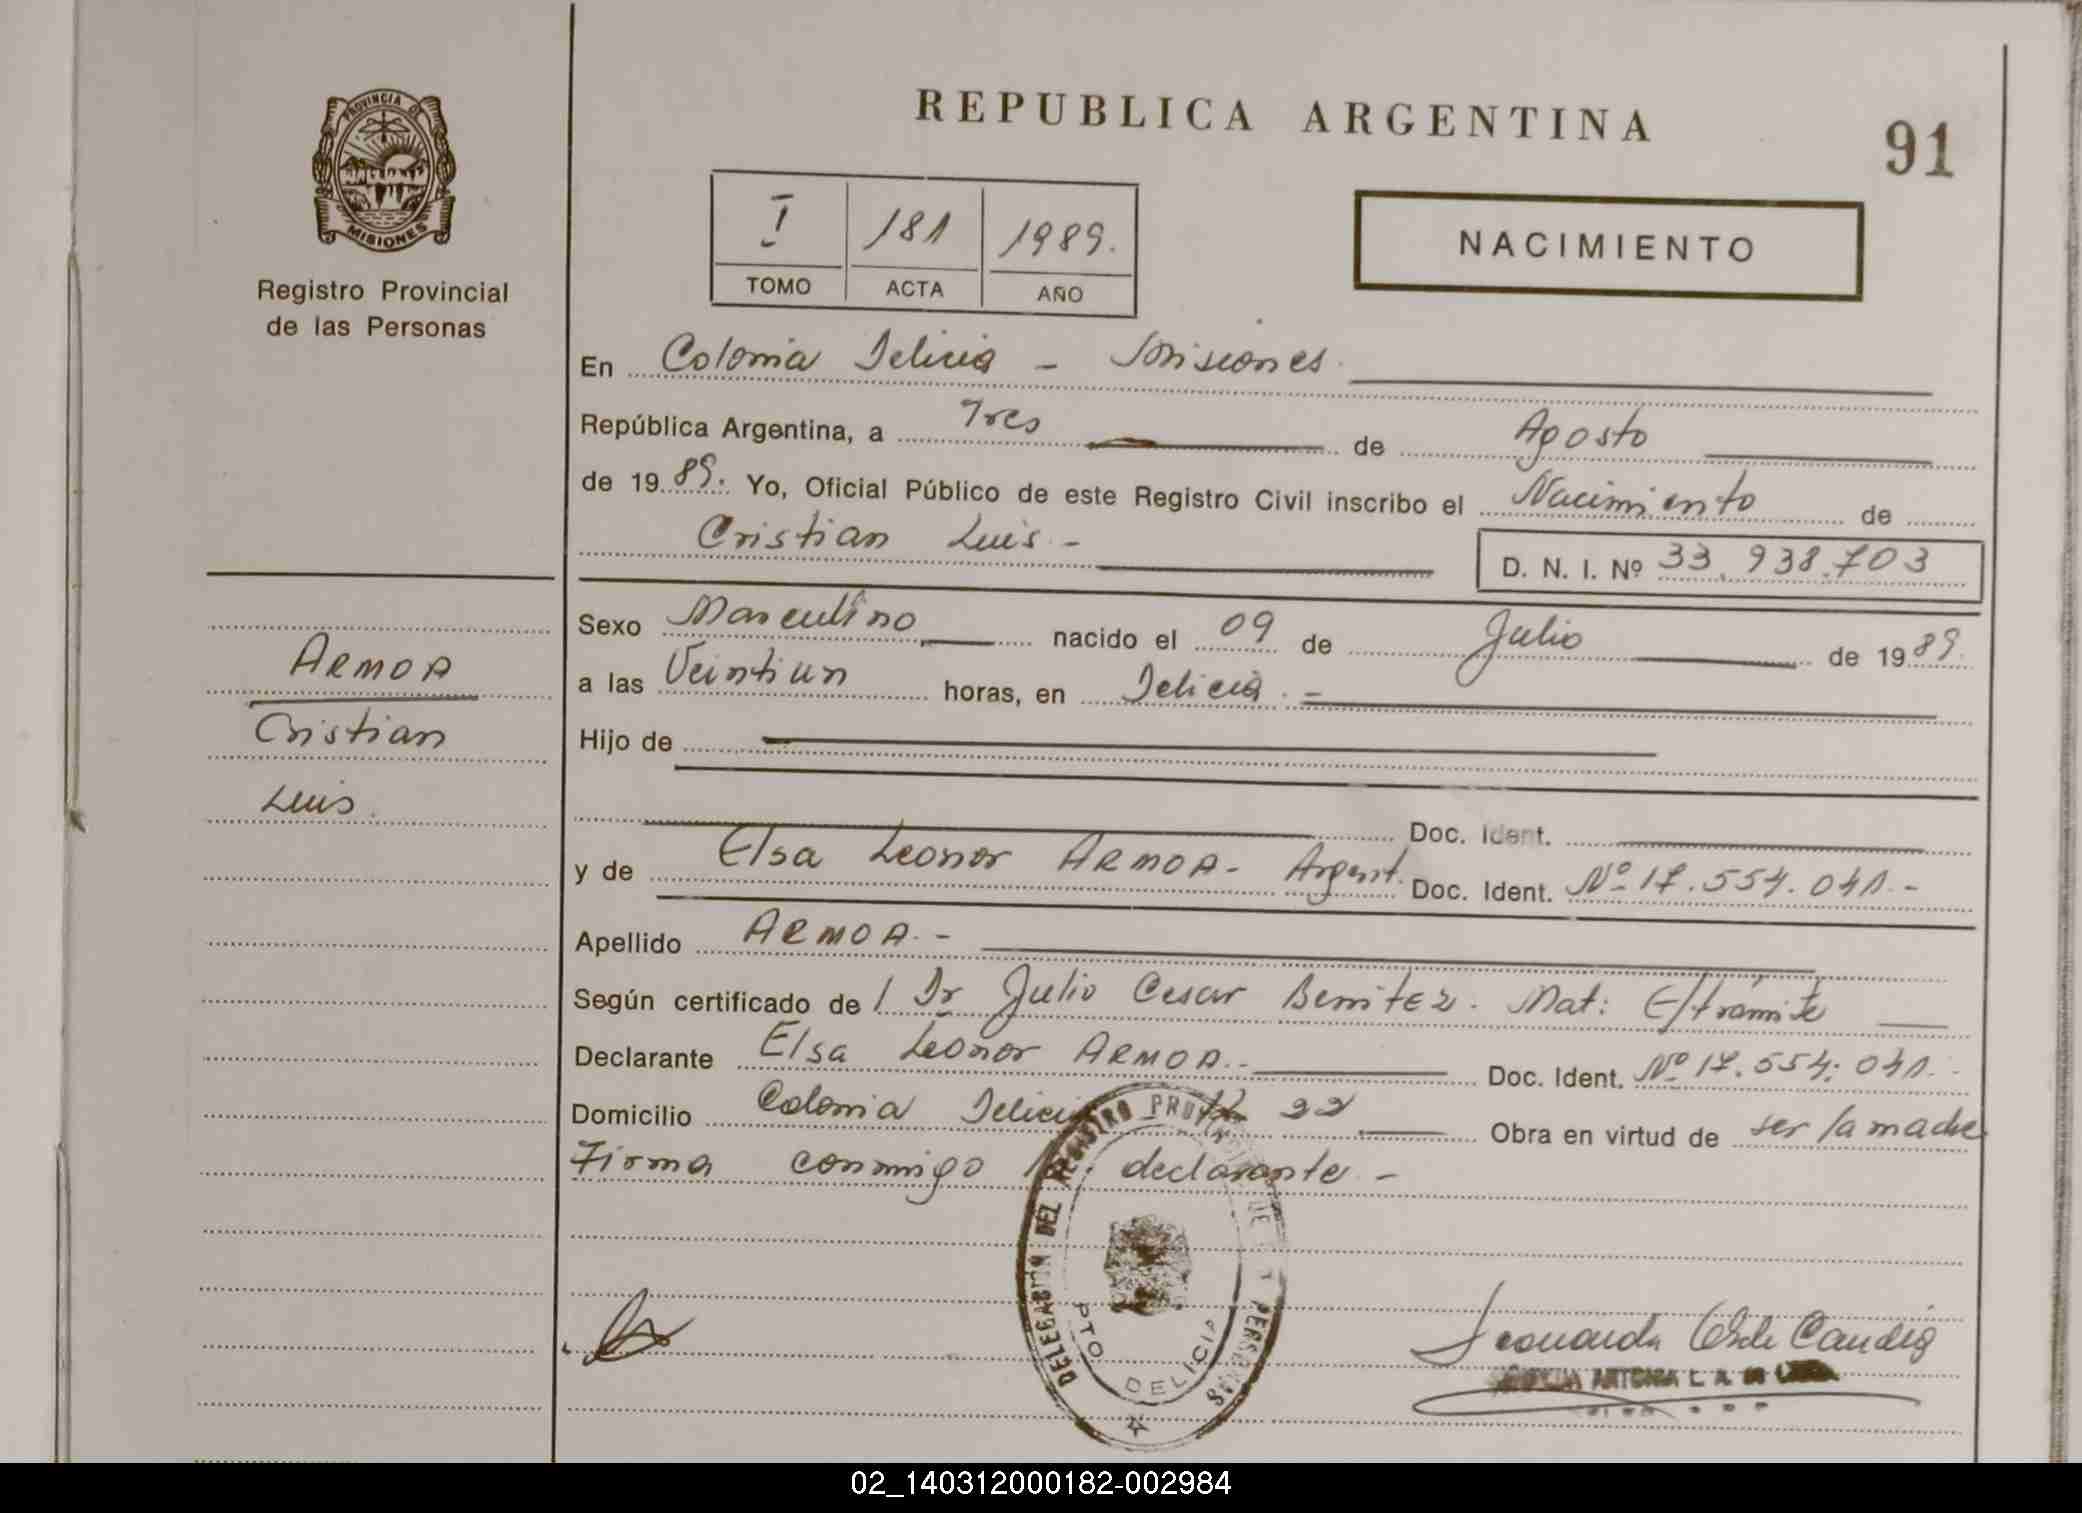 REPUBLICA ARGENTINA
91
PROVINCIA DE
MISIONES
Registro Provincial
de las Personas
I 181 1989.
TOMO ACTA AÑO
NACIMIENTO
En Colonia Delicia - Misiones
República Argentina, a Tres de Agosto
de 19 89. Yo, Oficial Público de este Registro Civil inscribo el Nacimiento de
Cristian Luis -
D. N. I. Nº 33.938.703
ARMOA
Cristian
Luis.
Sexo Masculino nacido el 09 de Julio de 19 89.
a las Veintiun horas, en Delicia. -
Hijo de
Doc. Ident.
y de Elsa Leonor ARMOA - Argent. Doc. Ident. Nº 17.554.041. -
Apellido ARMOA. -
Según certificado de / Dr Julio Cesar Benitez. Mat: E/tramite
Declarante Elsa Leonor ARMOA. - Doc. Ident. Nº 17.554.041. -
Domicilio Colonia Delicia 22 Obra en virtud de ser la madre
Firma conmigo declarante. -
DELEGACION DEL REGISTRO PROVINCIAL DE PERSONAS
PTO DELICIA
02_140312000182-002984